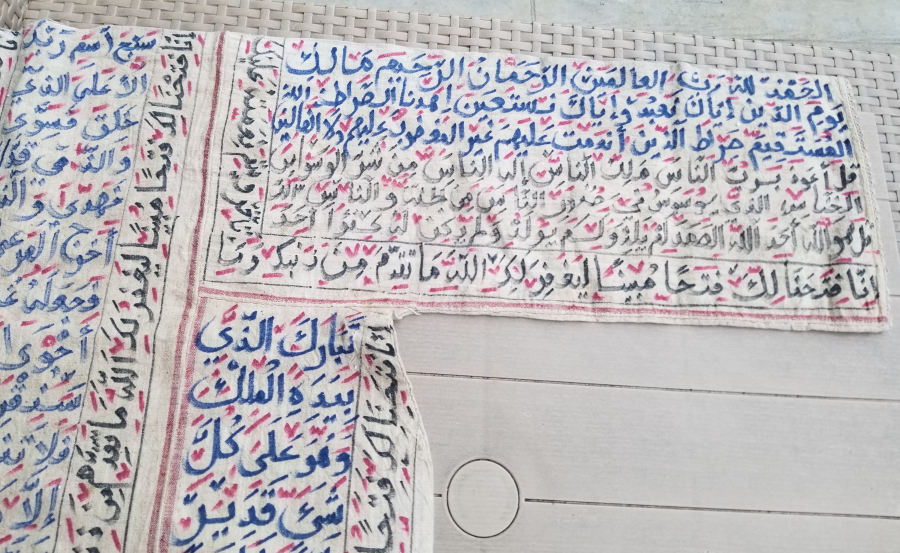 الحمد لله رب العالمين الرحمان الرحيم مالك
يوم الدين إياك نعبد وإياك نستعين اهدنا الصراط
المستقيم صراط الذين أنعمت عليهم غير المغضوب عليهم ولا الضالين
قل أعوذ برب الناس ملك الناس إله الناس من شر الوسواس
الخناس الذي يوسوس في صدور الناس من الجنة والناس
قل هو الله أحد الله الصمد لم يلد ولم يولد ولم يكن له كفوا أحد
إنا فتحنا لك فتحا مبينا ليغفر لك الله ما تقدم من ذنبك وما
إنا فتحنا لك فتحا مبينا ليغفر لك الله ما تقدم من
سبح اسم ربك
الأعلى الذي
خلق فسوى
والذي قد
فهدى والذ
أخرج المرعى
فجعله غ
أحوى
سنقر
فلا تن
إلا
تبارك الذي
بيده الملك
وهو على كل
شيء قدير
إنا فتحنا لك فتحا